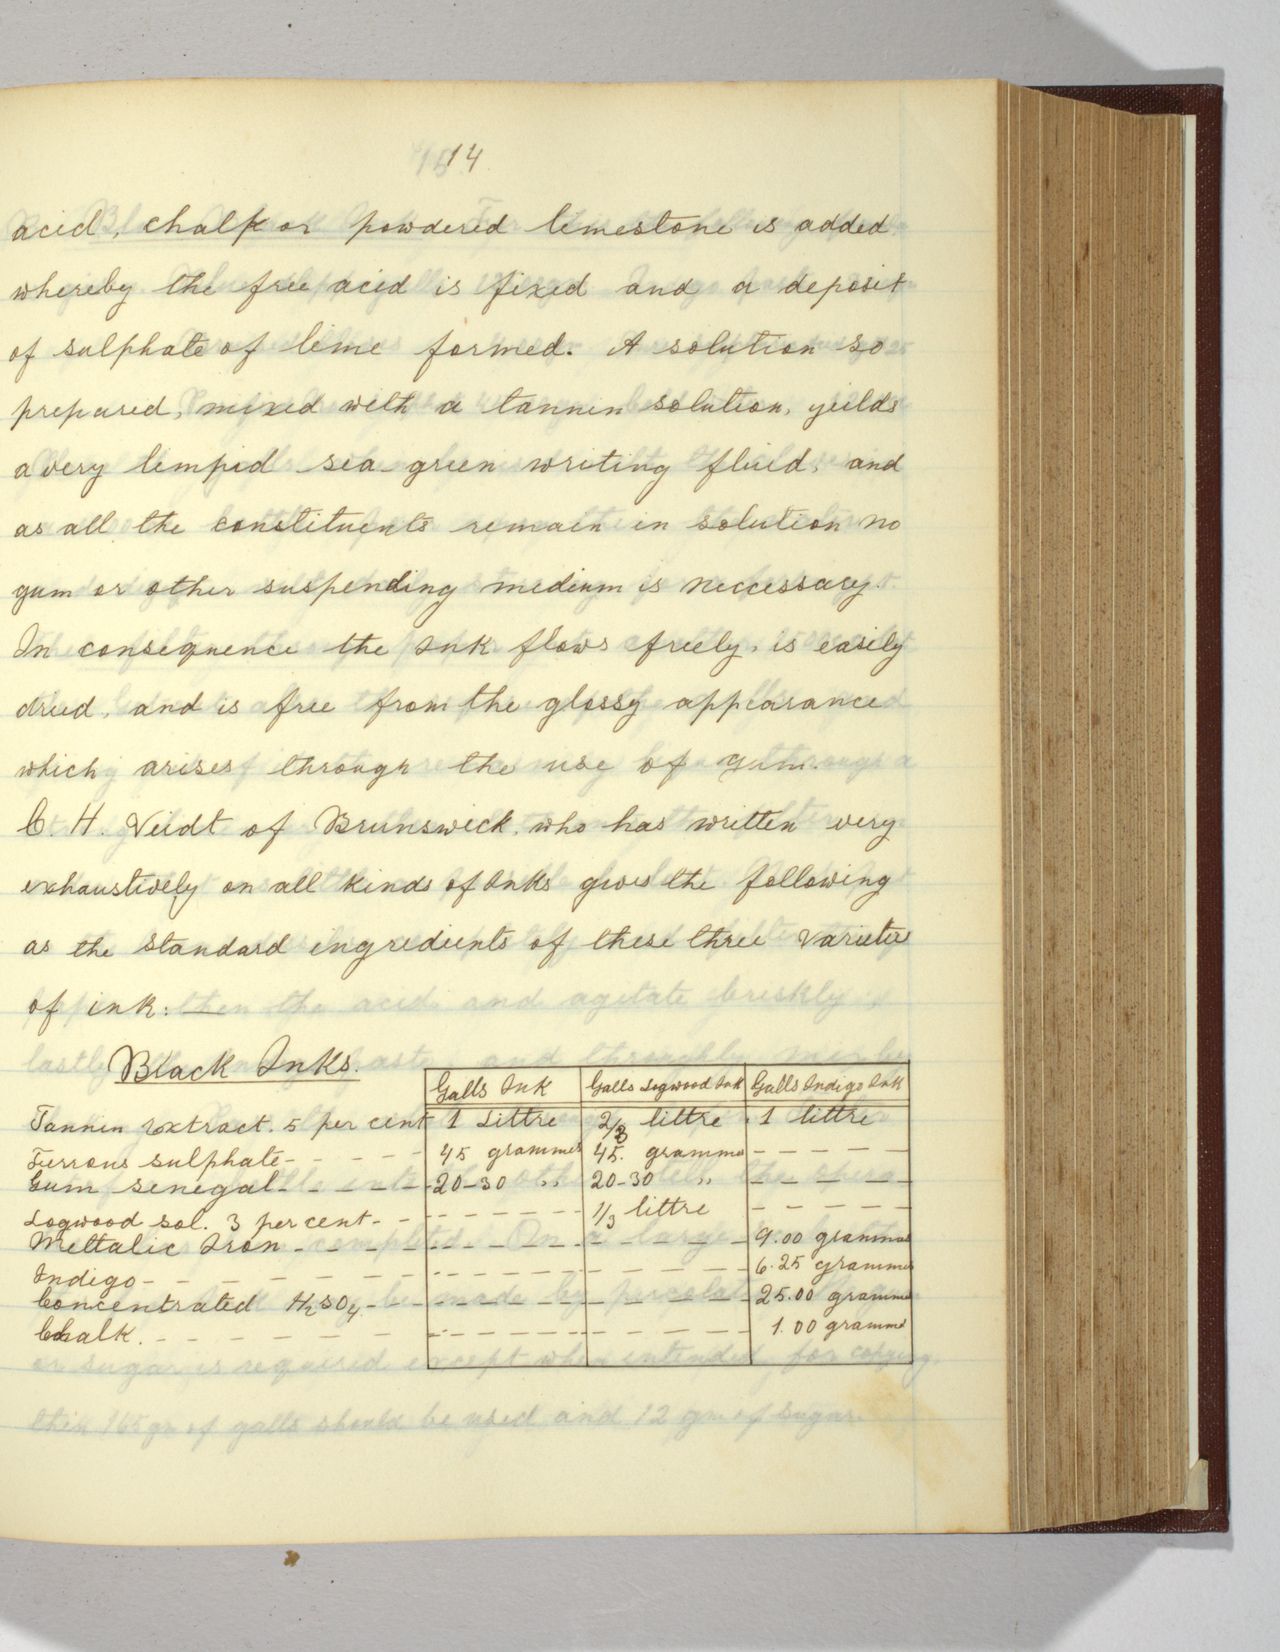 14
acid, chalk or powdered limestone is added
whereby the free acid is fixed and a deposit
of sulphate of lime formed. A solution so
prepared, mixed with a tannin solution, yeilds
a very limpid sea green writing fluid, and
as all the constituents remain in solution no
gum or other suspending medium is neccessary.
In consequence the Ink flows freely, is easily
dried, and is free from the glossy appearance
which arises through the use of gum.
C. H. Veidt of Brunswick, who has written very
exhaustively on all kinds of Inks gives the following
as the standard ingredients of these three varieties
of ink: —
Black Inks.
Galls Ink Galls Logwood Ink Galls Indigo Ink
Tannin extract. 5 per cent 1 Littre 2/3 littre 1 littre
Ferrous sulphate - - - - - 45 grammes 45. gramms - - - - -
Gum senegal - - - - - 20-30 ,, 20-30 ,, - - - - -
Logwood sol. 3 per cent - - - - - - - 1/3 littre - - - - -
Mettalic Iron - - - - - - - - - - - - - - - 9.00 grammes
Indigo - - - - - - - - - - - - - - - 6.25 grammes
Concentrated H2SO4 - - - - - - - - - - - - - 25.00 gramme
Chalk. - - - - - - - - - - - - - - - 1.00 gramme
then the acid and agitate briskly
or sugar is required except when intended for copying
then 165 gr of galls should be used and 12 gm of sugar.